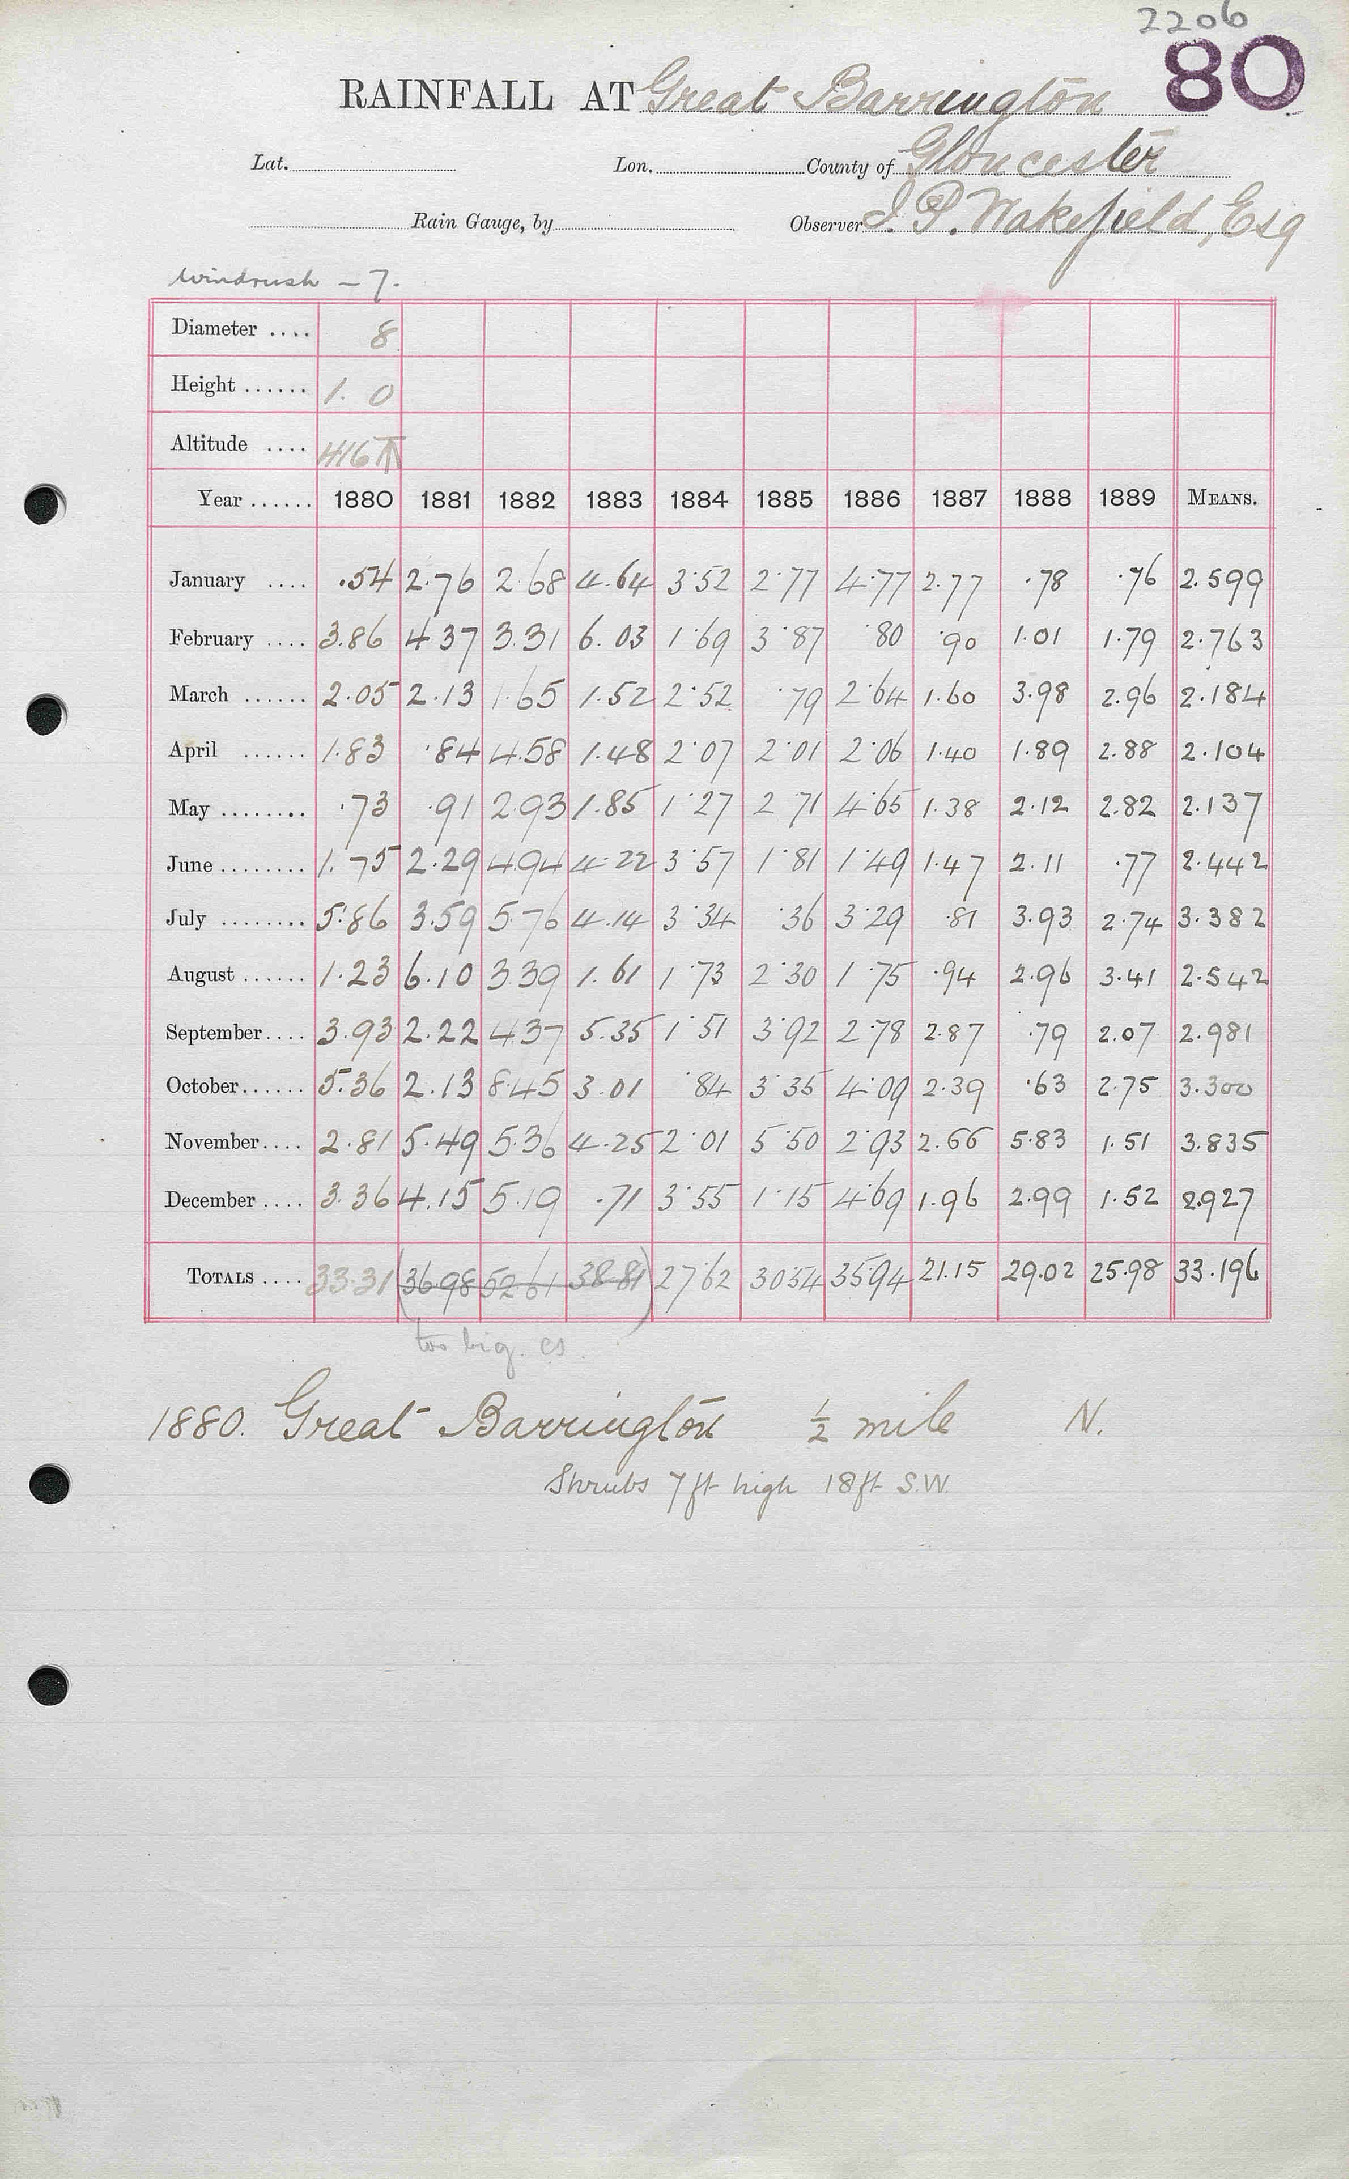 2206
80
RAINFALL AT Great Barrington
Lat. Lon. County of Gloucester
Rain Gauge, by Observer J. P. Wakefield, Esq
Windrush – 7.
Diameter .... 8
Height ...... 1. 0
Altitude .... 416 T
Year ...... 1880 1881 1882 1883 1884 1885 1886 1887 1888 1889 MEANS.
January .... .54 2.76 2.68 4.64 3.52 2.77 4.77 2.77 .78 .76 2.599
February .... 3.86 4 37 3.31 6.03 1.69 3.87 .80 .90 1.01 1.79 2.763
March ...... 2.05 2.13 1.65 1.52 2.52 .79 2.64 1.60 3.98 2.96 2.184
April ...... 1.83 .84 4.58 1.48 2.07 2.01 2.06 1.40 1.89 2.88 2.104
May ........ .73 .91 2.93 1.85 1.27 2 71 4.65 1.38 2.12 2.82 2.137
June ........ 1.75 2.29 4.94 4.22 3.57 1.81 1.49 1.47 2.11 .77 2.442
July ........ 5.86 3.59 5.76 4.14 3.34 .36 3.29 .81 3.93 2.74 3.382
August ...... 1.23 6.10 3.39 1.61 1.73 2.30 1.75 .94 2.96 3.41 2.542
September .... 3.93 2.22 4.37 5.35 1.51 3.92 2.78 2.87 .79 2.07 2.981
October ...... 5.36 2.13 8.45 3.01 .84 3.35 4.09 2.39 .63 2.75 3.300
November .... 2.81 5.49 5.36 4.25 2.01 5.50 2.93 2.66 5.83 1.51 3.835
December .... 3.36 4.15 5.19 .71 3.55 1.15 4.69 1.96 2.99 1.52 2.927
TOTALS .... 33.31 (36.98 52.61 38.81) 27.62 30.54 35.94 21.15 29.02 25.98 33.196
too big. cs.
1880. Great Barrington ½ mile N.
Shrubs 7 ft high 18 ft S.W.